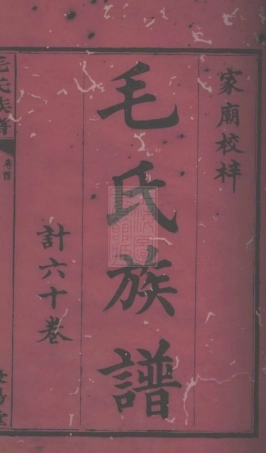 家廟校梓
毛氏族譜
計六十卷
毛氏族譜
卷首